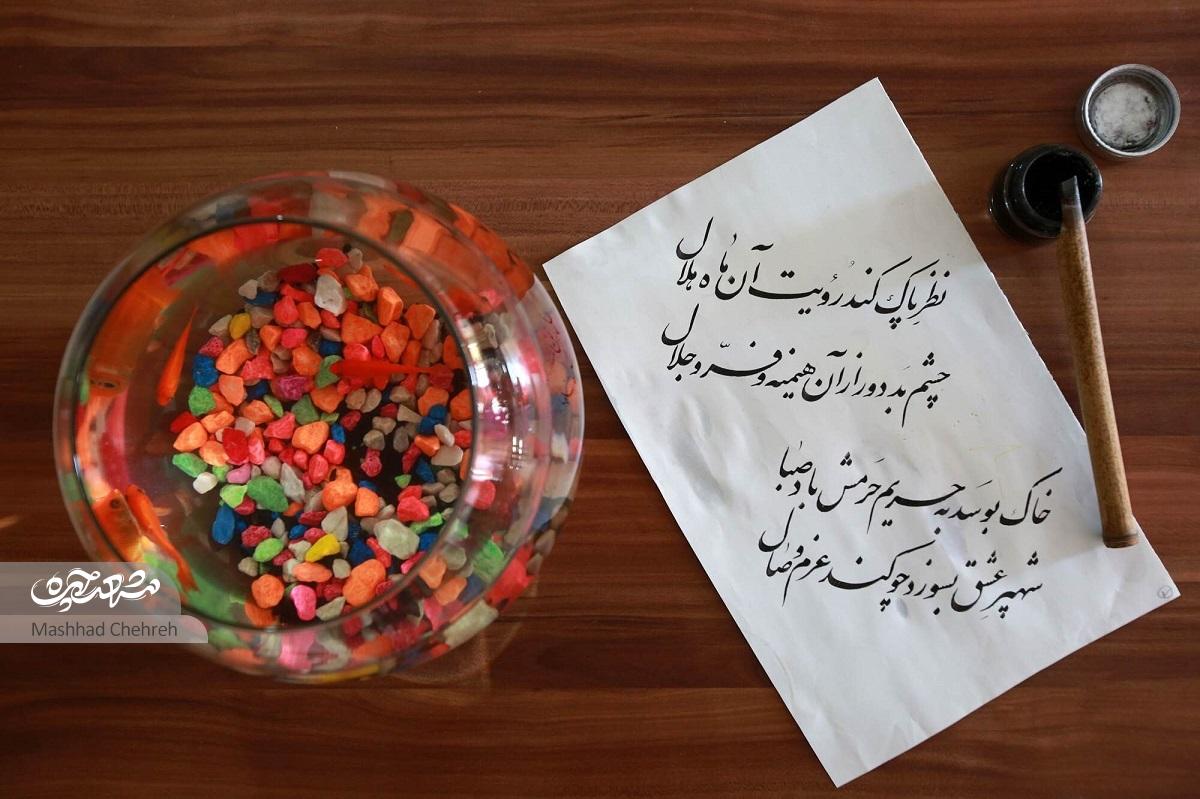 نظرِ پاک کند رُویت آن ماه هلال
چشم بَد دور از آن هیمنه و فرّ و جلال
خاک بوسَد به حریم حَرَمش باد صبا
شهپر عشق بسوزد چو کند عزم وصال
مشهد چهره
Mashhad Chehreh